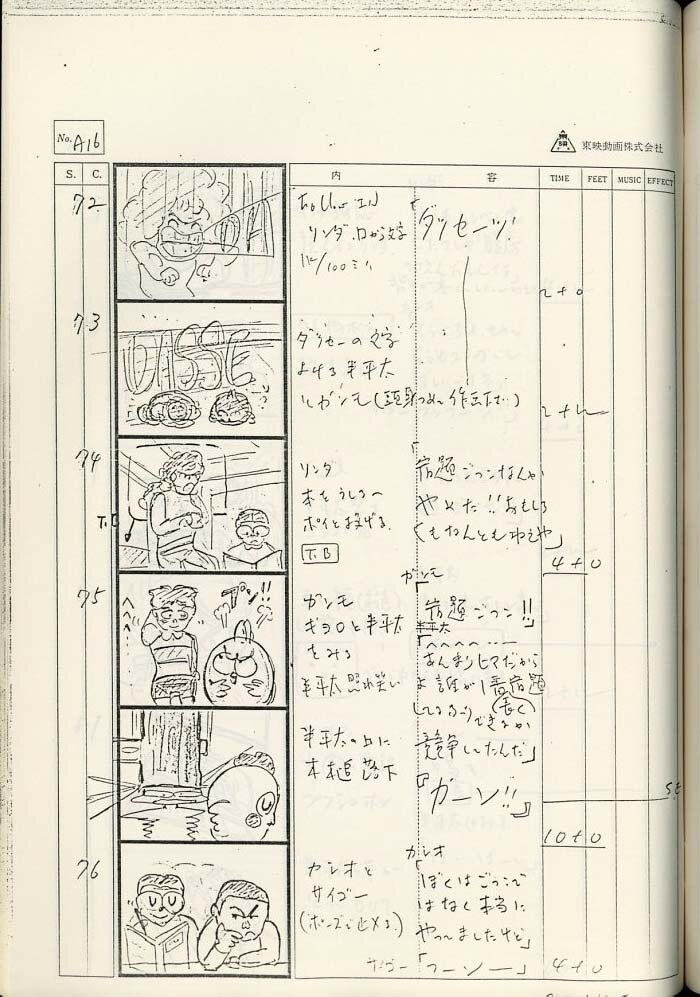 No. A16
東映動画株式会社
S. C. 内容 TIME FEET MUSIC EFFECT
72
リンダ口から文字
「ダッセーッ!
DA
2+0
73
DASSE
ダッセーの文字
よける半平太
とガンモ(頭身つめ、作画
2+
74
T.B
リンダ
本をうしろへ
ポイと投げる
T.B
「宿題ごっこなんか
やめた!!おもしろ
くもなんともねえや」
4+0
75
へへへ
プン!!
ガンモ
ギョロと半平太
をみる
半平太照れ笑い
ガンモ
「宿題ごっこ!!
半平太
「へへへへ……
あんまりヒマだから
よ誰が1番宿題
してるつもり(長く)できるか
競争してたんだ」
半平太の上に
本落下
『カーン!!』
SE
10+0
76
カシオと
サイゴー
(ポーズで止メる)
カシオ
「ぼくはごっこで
はなく本当に
やってましたけど」
サイゴー「つーソー」
4+0